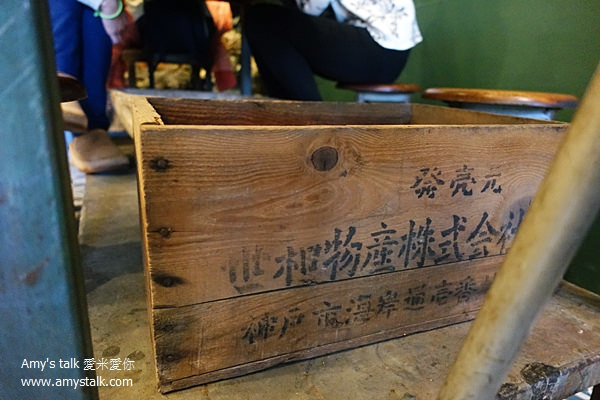 発売元
世相物産株式会社
神戸市海岸通壱番
Amy's talk 愛米愛你
www.amystalk.com